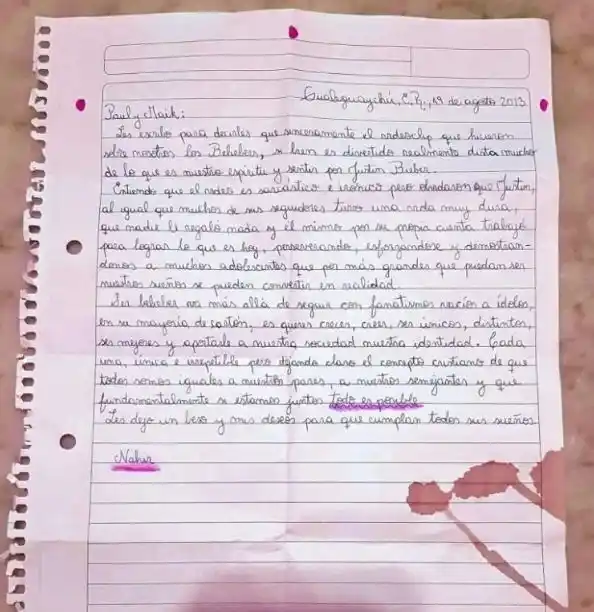 Gualeguaychú, E.R., 19 de agosto 2013
Paul y Maik:
Les escribo para decirles que sinceramente el videoclip que hicieron
sobre nosotros los Beliebers, si bien es divertido realmente dista mucho
de lo que es nuestro espíritu y sentir por Justin Bieber.
Entiendo que el video es sarcástico e irónico pero olvidaron que Justin,
al igual que muchos de sus seguidores tuvo una vida muy dura,
que nadie le regaló nada y él mismo por su propia cuenta trabajó
para lograr lo que es hoy, perseverando, esforzandose y demostran-
donos a muchos adolescentes que por más grandes que puedan ser
nuestros sueños se pueden convertir en realidad.
Ser belieber va más allá de seguir con fanatismos vacíos a ídolos,
en su mayoría de cartón, es querer crecer, creer, ser únicos, distintos,
ser mejores y aportarle a nuestra sociedad nuestra identidad. Cada
una, única e irrepetible pero dejando claro el concepto cristiano de que
todos somos iguales a nuestros pares, a nuestros semejantes y que
fundamentalmente si estamos juntos todo es posible
Les dejo un beso y mis deseos para que cumplan todos sus sueños
Nahir